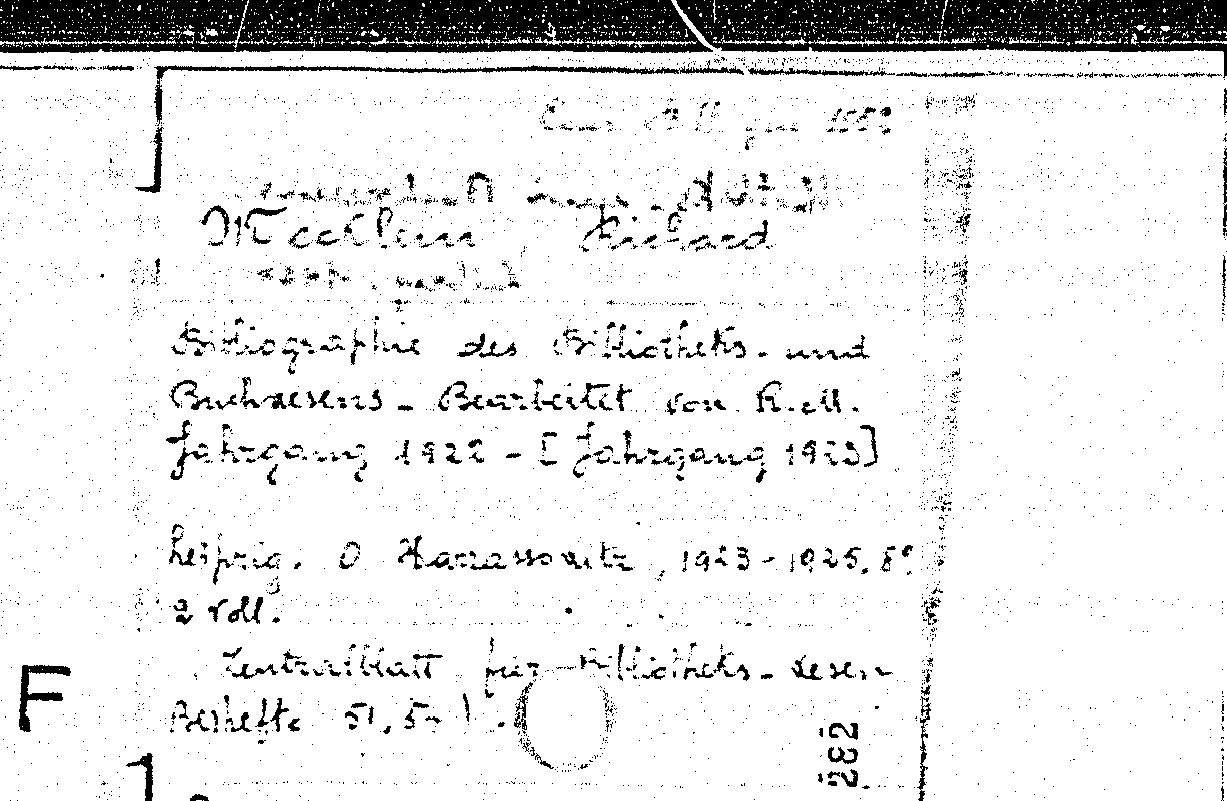 Mecklein, Richard
Bibliographie des Bibliotheks- und
Buchwesens - Bearbeitet von R. M.
Jahrgang 1922 - [Jahrgang 1923]
Leipzig. O Harrassowitz, 1923-1925. 8°
2 voll.
Zentralblatt für Bibliotheks-wesen
Beihefte 51,
F
282